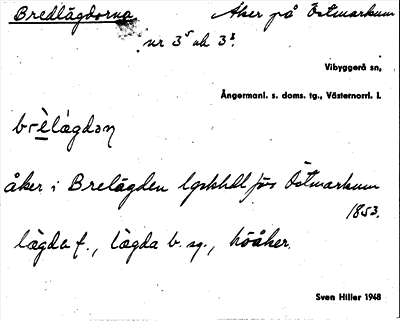 Bredlägdorna Åker på Östmarkum
nr 3⁵ och 3⁸.
Vibyggerå sn,
Ångermanl. s. doms. tg., Västernorrl. l.
åker i Brelägden lgskhdl för Östmarkum
1853.
lägda f., lägda b. sg., höåker.
Sven Hiller 1948